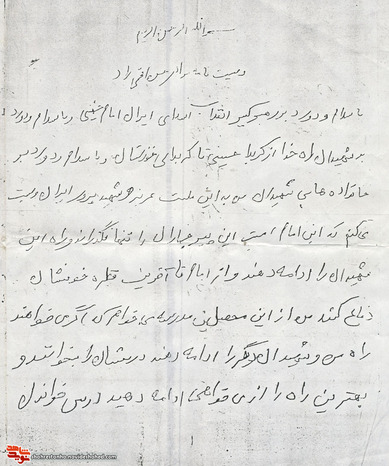 بسم الله الرحمن الرحیم
وصیت نامه برادر حسن اقبالی راد
با سلام و درود بر رهبر کبیر انقلاب اسلامی ایران امام خمینی و با سلام و درود
بر شهیدان راه خدا از کربلای حسینی تا کربلای خوزستان و با سلام و درود بر
خانواده های شهیدان من به این ملت عزیز و شهید پرور ایران وصیت
می کنم که این امام امت این پیر جماران را تنها نگذارند و راه این
شهیدان را ادامه دهند و از امام تا آخرین قطره خونشان
دفاع کنند من از این محصلین مدرسه می خواهم که اگر می خواهند
راه من و شهیدان دیگر را ادامه دهند درسشان را بخوانند و
بهترین راه را از من می خواهی ادامه دهید درس خواندن
shohrastanha.navideshahed.com